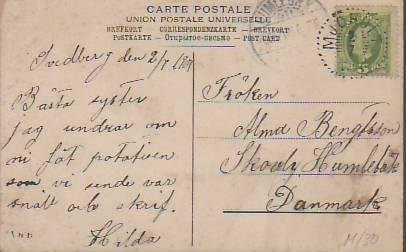 CARTE POSTALE
UNION POSTALE UNIVERSELLE
BREFKORT CORRESPONDENZKARTE BREVKORT
POSTKARTE — Открытое письмо — POST CARD
Svedberg den 2/7
Bästa syster
jag undrar om
ni fåt potatisen
som vi sende var
snäll och skrif.
Hilda
Fröken
Alma Bengtsson
Skovly Humlebæk
Danmark
M/30